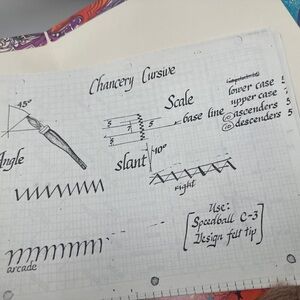 Chancery Cursive
45°
Angle
Scale
5
7
5
5
base line
lower case 5
upper case 7
ascenders 5
descenders 5
slant
10°
right
arcade
Use:
Speedball C-3
Design felt tip